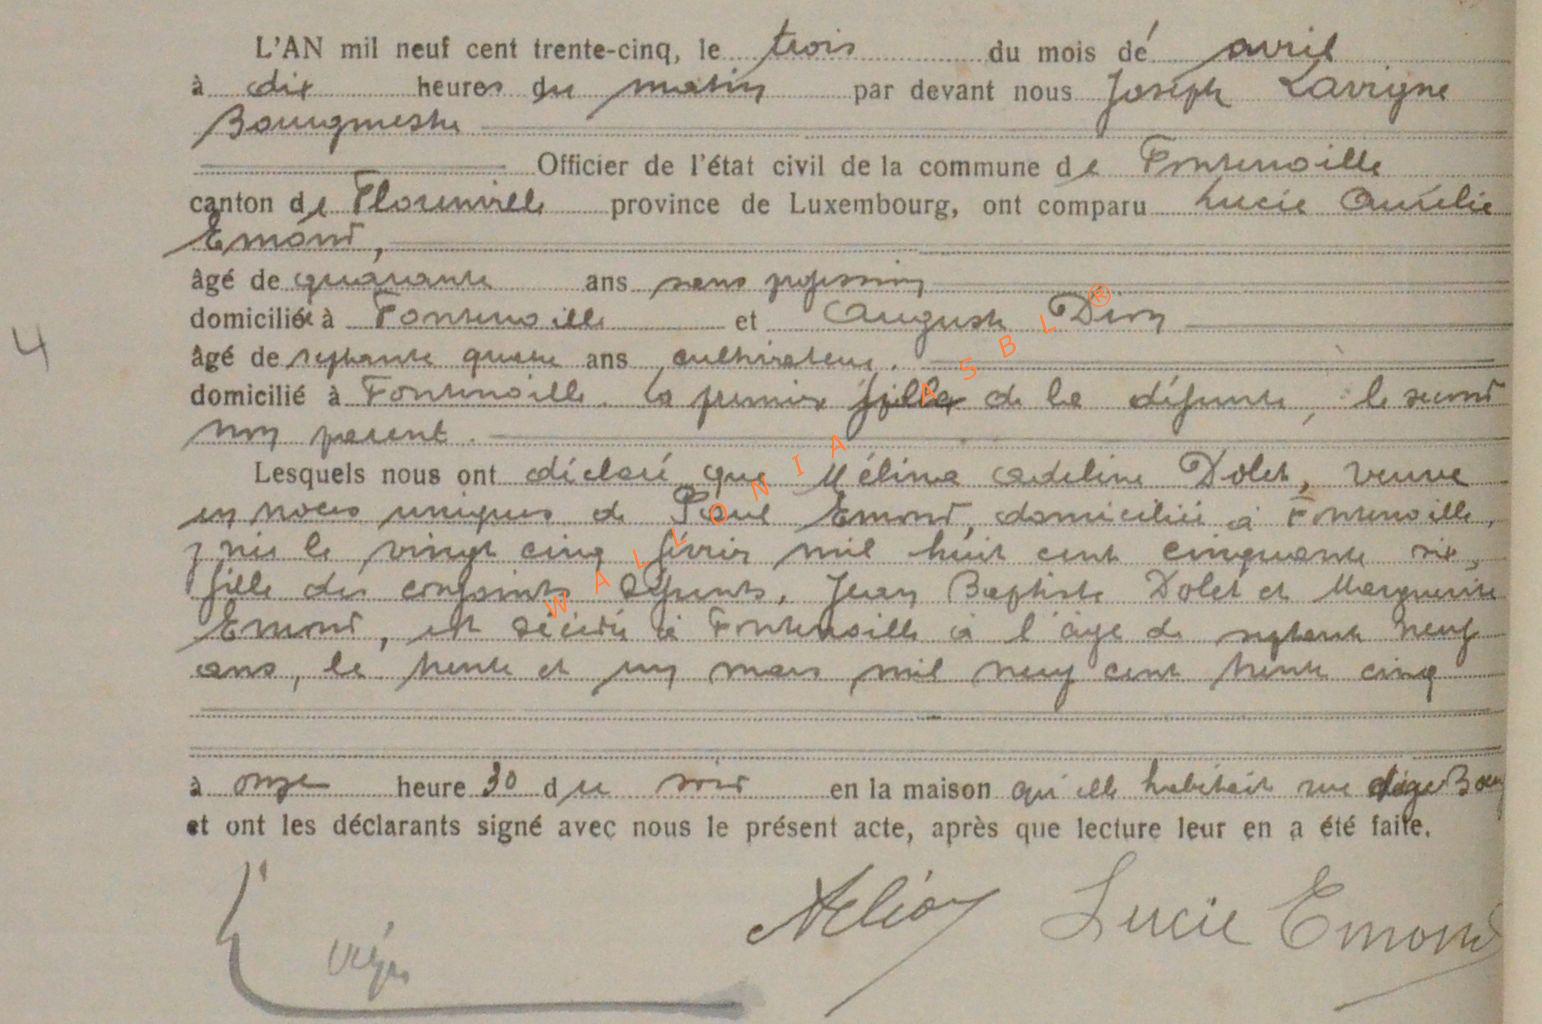 L'AN mil neuf cent trente-cinq, le trois du mois de avril
à dix heures du matin par devant nous Joseph Lavigne
Bourgmestre
Officier de l'état civil de la commune de Fontenoille
canton de Florenville province de Luxembourg, ont comparu Lucie Aurélie
Emond,
âgé de quarante ans sans profession
domiciliée à Fontenoille et Auguste
âgé de septante quatre ans, cultivateur.
domicilié à Fontenoille. la première fille de la défunte, le second
non parent.
Lesquels nous ont déclaré que Mélina Adeline Dolet, veuve
en noces uniques de Paul Emond, domiciliée à Fontenoille,
y née le vingt cinq février mil huit cent cinquante six,
fille des conjoints défunts, Jean Baptiste Dolet et Marguerite
Emond, est décédée à Fontenoille à l'âge de septante neuf
ans, le trente et un mars mil neuf cent trente cinq
à onze heure 30 du soir en la maison qu'elle habitait rue
et ont les déclarants signé avec nous le présent acte, après que lecture leur en a été faite.
Lucie Emond
4
WALLONIA ASBL ®